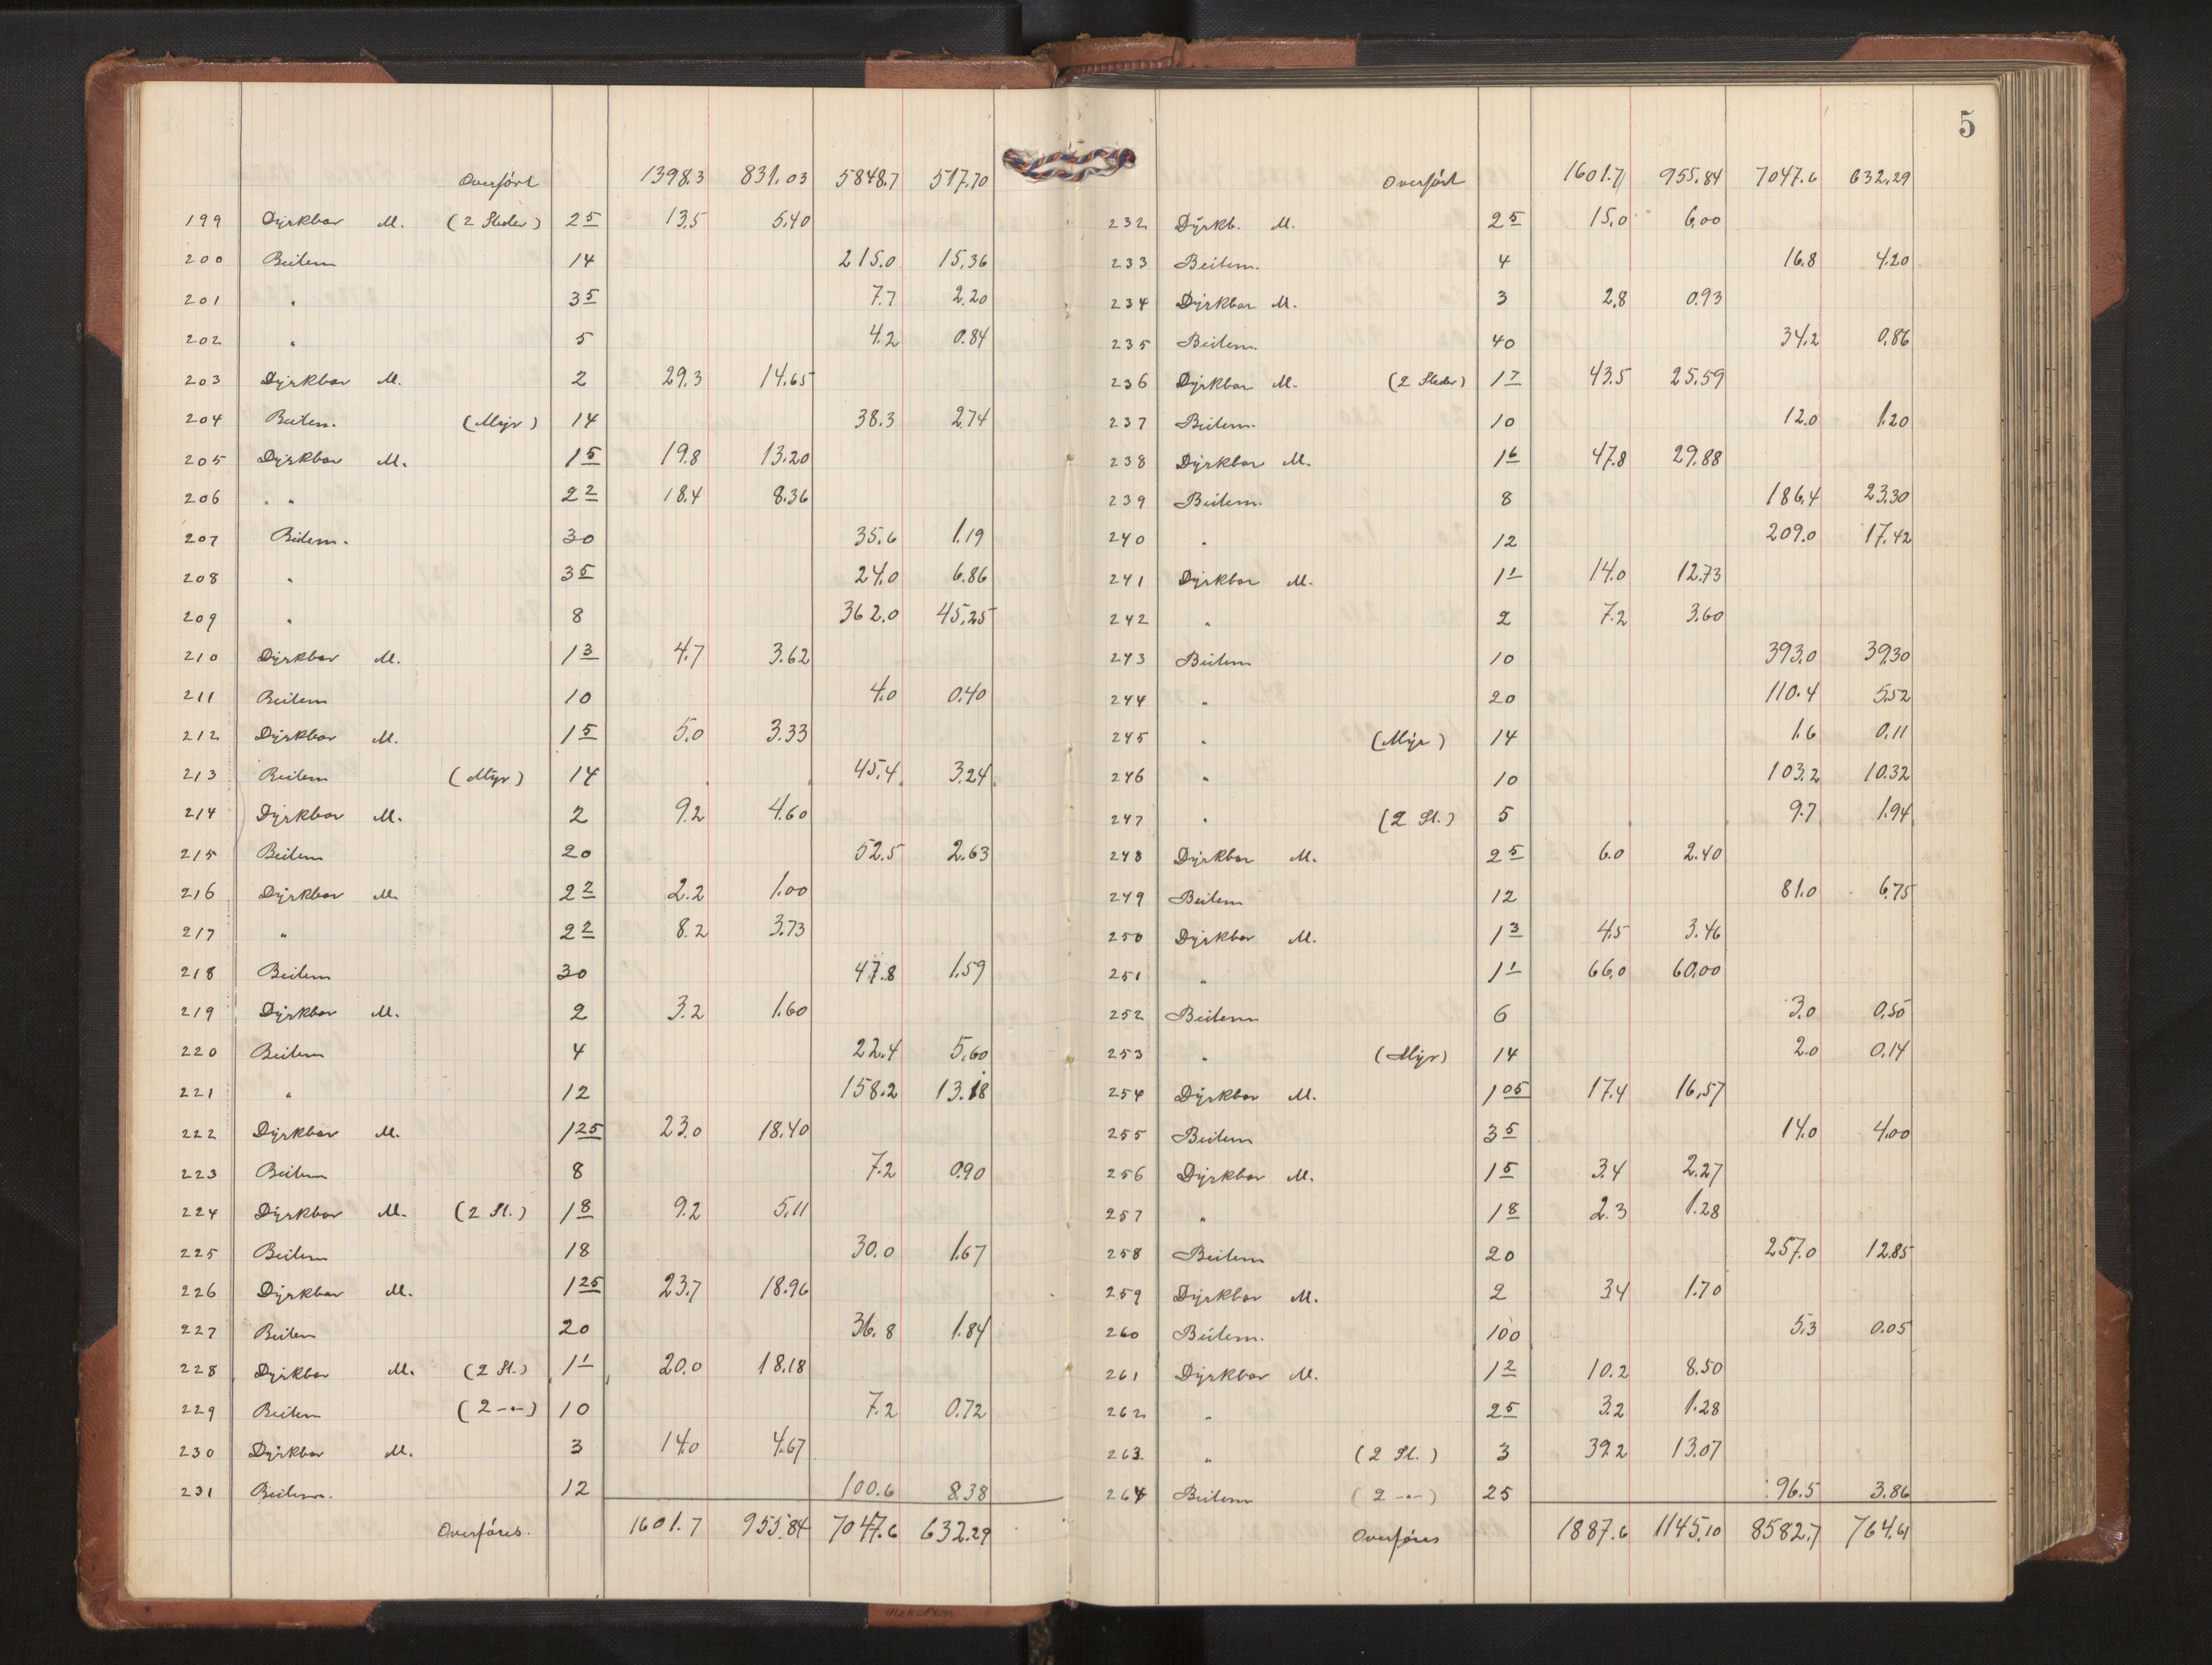 Overført 1398.3 831.03 5848.7 517.70
199 Dyrkbar M. (2 Steder) 2 5 13,5 5,40
200 Beitem 14 215.0 15,36
201 " 3 5 7.7 2.20
202 " 5 4.2 0.84
203 Dyrkbar M. 2 29.3 14.65
204 Beitem. (Myr) 14 38.3 2.74
205 Dyrkbar M. 1 5 19.8 13.20
206 " " 2 2 18.4 8.36
207 Beitem. 30 35.6 1.19
208 " 3 5 24.0 6.86
209 " 8 362.0 45,25
210 Dyrkbar M. 1 3 4.7 3.62
211 Beitem 10 4.0 0.40
212 Dyrkbar M. 1 5 5.0 3.33
213 Beitem (Myr) 14 45.4 3.24
214 Dyrkbar M. 2 9.2 4.60
215 Beitem 20 52.5 2.63
216 Dyrkbar M. 2 2 2.2 1.00
217 " 2 2 8.2 3.73
218 Beitem 30 47.8 1.59
219 Dyrkbar M. 2 3.2 1.60
220 Beitem 4 22.4 5,60
221 " 12 158.2 13.18
222 Dyrkbar M. 1 25 23.0 18.40
223 Beitem 8 7.2 0.90
224 Dyrkbar M. (2 St.) 1 8 9.2 5,11
225 Beitem 18 30.0 1.67
226 Dyrkbar M. 1 25 23.7 18.96
227 Beitem 20 36.8 1.84
228 Dyrkbar M. (2 St.) 1 1 20.0 18.18
229 Beitem (2 -"-) 10 7.2 0.72
230 Dyrkbar M. 3 14.0 4.67
231 Beitem. 12 100.6 8.38
Overføres. 1601.7 955.84 7047.6 632.29
5
Overført 1601.7 955.84 7047.6 632.29
232 Dyrkb. M. 2 5 15.0 6,00
233 Beitem. 4 16.8 4.20
234 Dyrkbar M. 3 2,8 0.93
235 Beitem. 40 34.2 0.86
236 Dyrkbar M. (2 Steder) 1 7 43.5 25.59
237 Beitem. 10 12.0 1.20
238 Dyrkbar M. 1 6 47.8 29.88
239 Beitem. 8 186.4 23.30
240 " 12 209.0 17.42
241 Dyrkbar M. 1 1 14.0 12.73
242 " 2 7.2 3.60
243 Beitem 10 393.0 39.30
244 " 20 110.4 5.52
245 " (Myr) 14 1.6 0.11
246 " 10 103.2 10.32
247 " (2 St.) 5 9.7 1.94
248 Dyrkbar M. 2 5 6.0 2.40
249 Beitem 12 81.0 6.75
250 Dyrkbar M. 1 3 4.5 3.46
251 " 1 1 66.0 60.00
252 Beitem 6 3.0 0.50
253 " (Myr) 14 2.0 0.14
254 Dyrkbar M. 1 05 17.4 16,57
255 Beitem 3 5 14.0 4.00
256 Dyrkbar M. 1 5 3.4 2.27
257 " 1 8 2.3 1.28
258 Beitem 20 257.0 12.85
259 Dyrkbar M. 2 3.4 1.70
260 Beitem. 100 5.3 0.05
261 Dyrkbar M. 1 2 10.2 8.50
262 " 2 5 3.2 1.28
263 " (2 St.) 3 39.2 13.07
264 Beitem (2 -"-) 25 96.5 3.86
Overføres 1887.6 1145,10 8582.7 764.61